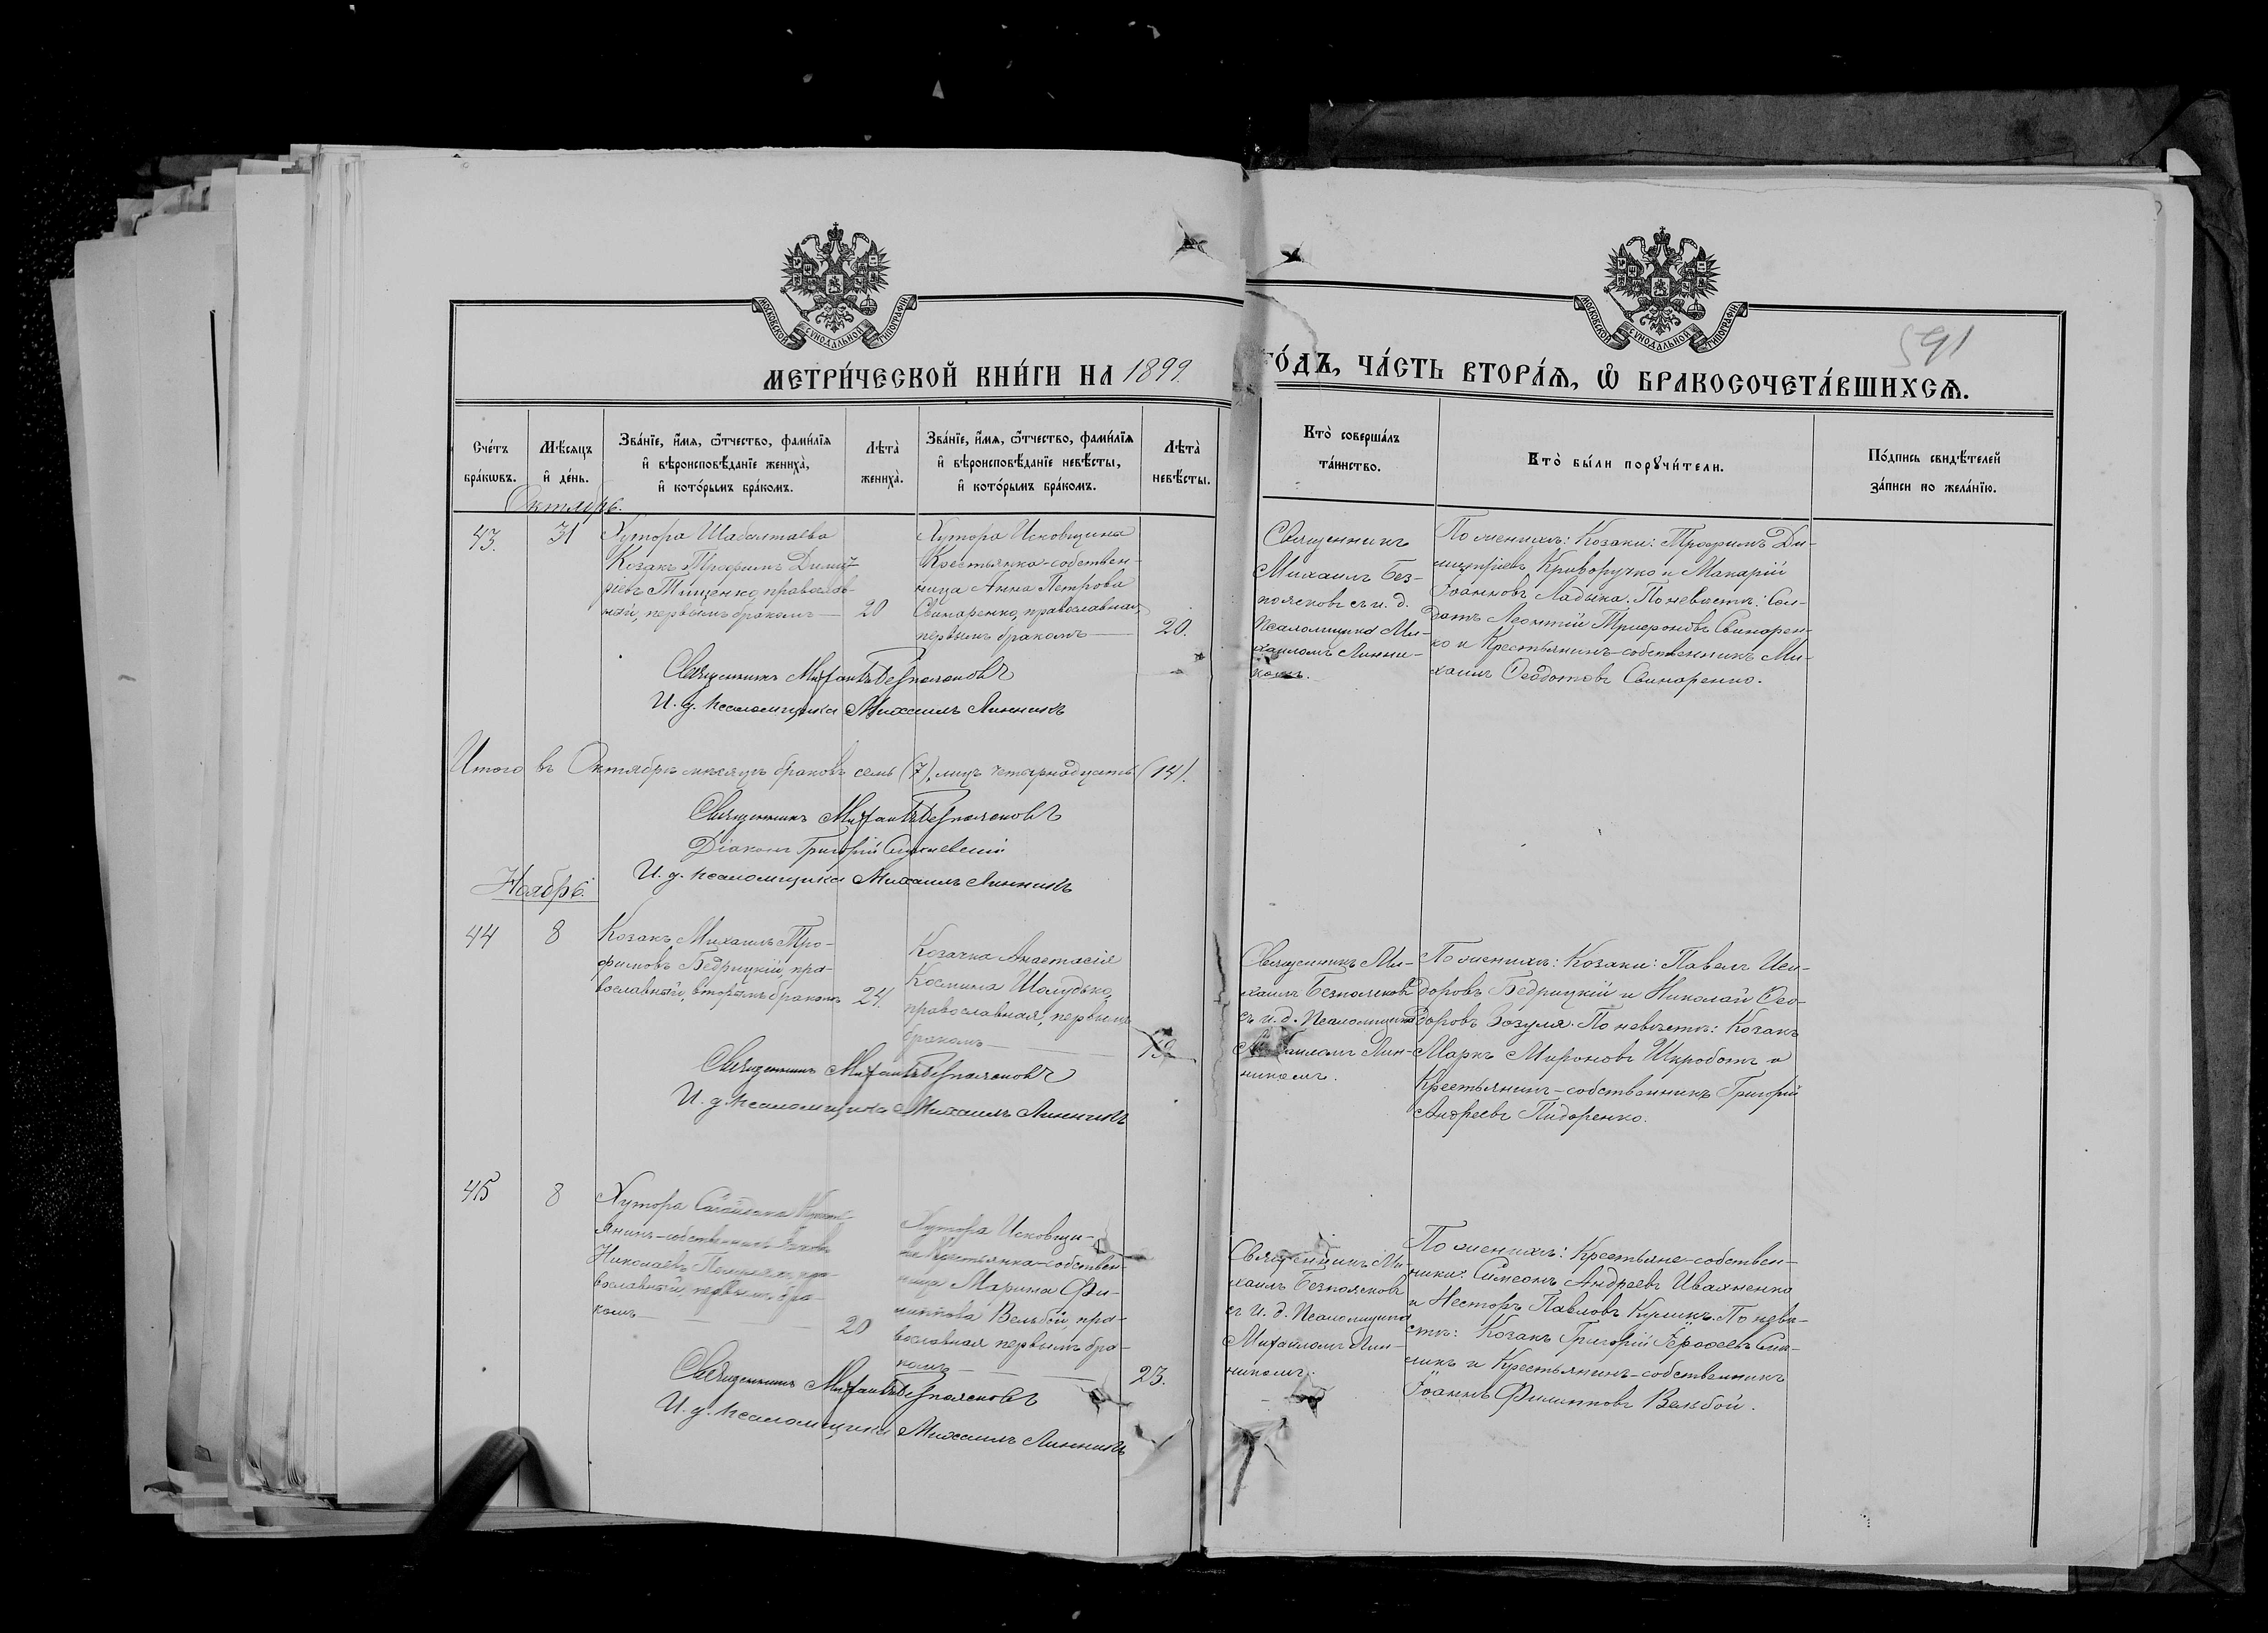 МОСКОВСКОЙ СѴНОДАЛЬНОЙ ТИПОГРАФІИ
МОСКОВСКОЙ СѴНОДАЛЬНОЙ ТИПОГРАФІИ
591
МЕТРИ́ЧЕСКОЙ КНИ́ГИ НА 1899.
ГО́ДЪ, ЧА́СТЬ ВТОРА́Ѧ, Ѽ БРАКОСОЧЕТА́ВШИХСѦ.
Сче́тъ
бра́кѡвъ.
Мѣ́сѧцъ
и҆ де́нь.
Зва́нїе, и҆́мѧ, ѻ҆́тчество, фами́лїѧ
и҆ вѣроисповѣ́данїе жениха̀,
и҆ кото́рымъ бра́комъ.
Лѣта̀
жениха̀.
Зва́нїе, и҆́мѧ, ѻ҆́тчество, фами́лїѧ
и҆ вѣроисповѣ́данїе невѣ́сты,
и҆ кото́рымъ бра́комъ.
Лѣта̀
невѣ́сты.
Кто̀ соверша́лъ
та́инство.
Кто̀ бы́ли порꙋчи́тели.
По́дпись свидѣ́телей
за́писи по жела́нїю.
Октябрь.
43.
31
Хутора Шабалтаева
Козакъ Трофимъ Димит-
ріевъ Тищенко, православ-
ный, первымъ бракомъ
20
Хутора Исковщина
Крестьянка-собствен-
ница Анна Петрова
Свинаренко, православная,
первымъ бракомъ
20.
Священникъ
Михаилъ Без-
поясковъ съ и. д.
Псаломщика Ми-
хаиломъ Линни-
комъ.
По женихѣ: Козаки: Трофимъ Ди-
митріевъ Криворучко и Макарій
Іоанновъ Ладыка. По невѣстѣ: Сол-
датъ Леонтій Трифоновъ Свинарен-
ко и Крестьянинъ-собственникъ Ми-
хаилъ Ѳеодотовъ Свинаренко.
Священникъ Михаилъ Безпоясковъ
И. д. псаломщика Михаилъ Линникъ
Итого въ Октябрѣ мѣсяцѣ браковъ семь (7), лицъ четырнадцать (14).
Священникъ Михаилъ Безпоясковъ
Діаконъ Григорій
И. д. псаломщика Михаилъ Линникъ
Ноябрь.
44
8
Козакъ Михаилъ Тро-
фимовъ Бедрицкій, пра-
вославный, вторымъ бракомъ
24.
Козачка Анастасія
Космина Шолудько,
православная, первымъ
бракомъ
19
Священникъ Ми-
хаилъ Безпоясковъ
съ и. д. Псаломщика
Михаиломъ Лин-
никомъ.
По женихѣ: Козаки: Павелъ Иси-
доровъ Бедрицкій и Николай Ѳео-
доровъ Зозуля. По невѣстѣ: Козакъ
Маркъ Мироновъ Шкроботъ и
Крестьянинъ-собственникъ Григорій
Андреевъ Пидоренко.
Священникъ Михаилъ Безпоясковъ
И. д. псаломщика Михаилъ Линникъ
45
8
Хутора Кресть-
янинъ-собственникъ
Николаевъ пра-
вославный, первымъ бра-
комъ
20
Хутора Исковщи-
на Крестьянка-собствен-
ница Марина Фи-
липпова Вельбой, пра-
вославная первымъ бра-
комъ
23.
Священникъ Ми-
хаилъ Безпоясковъ
съ И. д. Псаломщика
Михаиломъ Лин-
никомъ.
По женихѣ: Крестьяне-собствен-
ники: Симеонъ Андреевъ Ивахненко
и Несторъ Павловъ Куликъ. По невѣ-
стѣ: Козакъ Григорій
и Крестьянинъ-собственникъ
Іоаннъ Филипповъ Вельбой.
Священникъ Михаилъ Безпоясковъ
И. д. псаломщика Михаилъ Линникъ